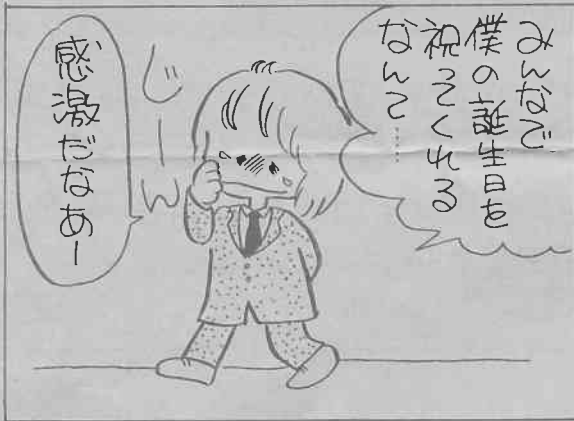 みんなで
僕の誕生日を
祝ってくれる
なんて……
じーん
感激だなあー